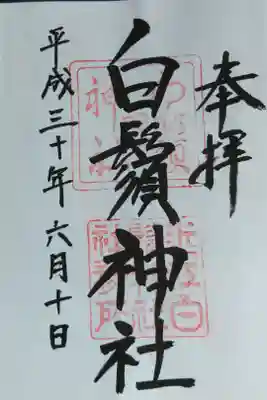 奉拝
白鬚神社
平成三十年六月十日